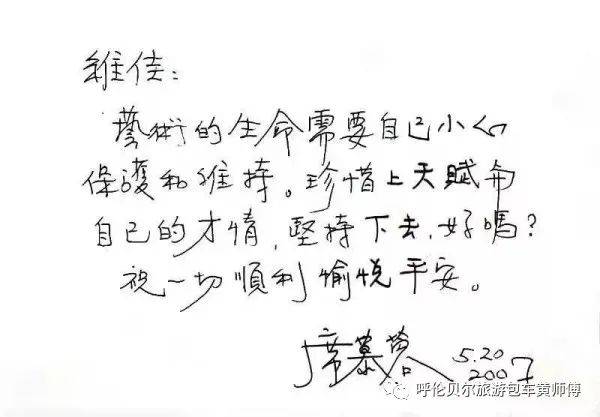 維佳：
藝術的生命需要自己小心
保護和維持。珍惜上天賦與
自己的才情，堅持下去，好嗎？
祝一切順利愉悦平安。
席慕蓉 5.20
2007
呼伦贝尔旅游包车黄师傅